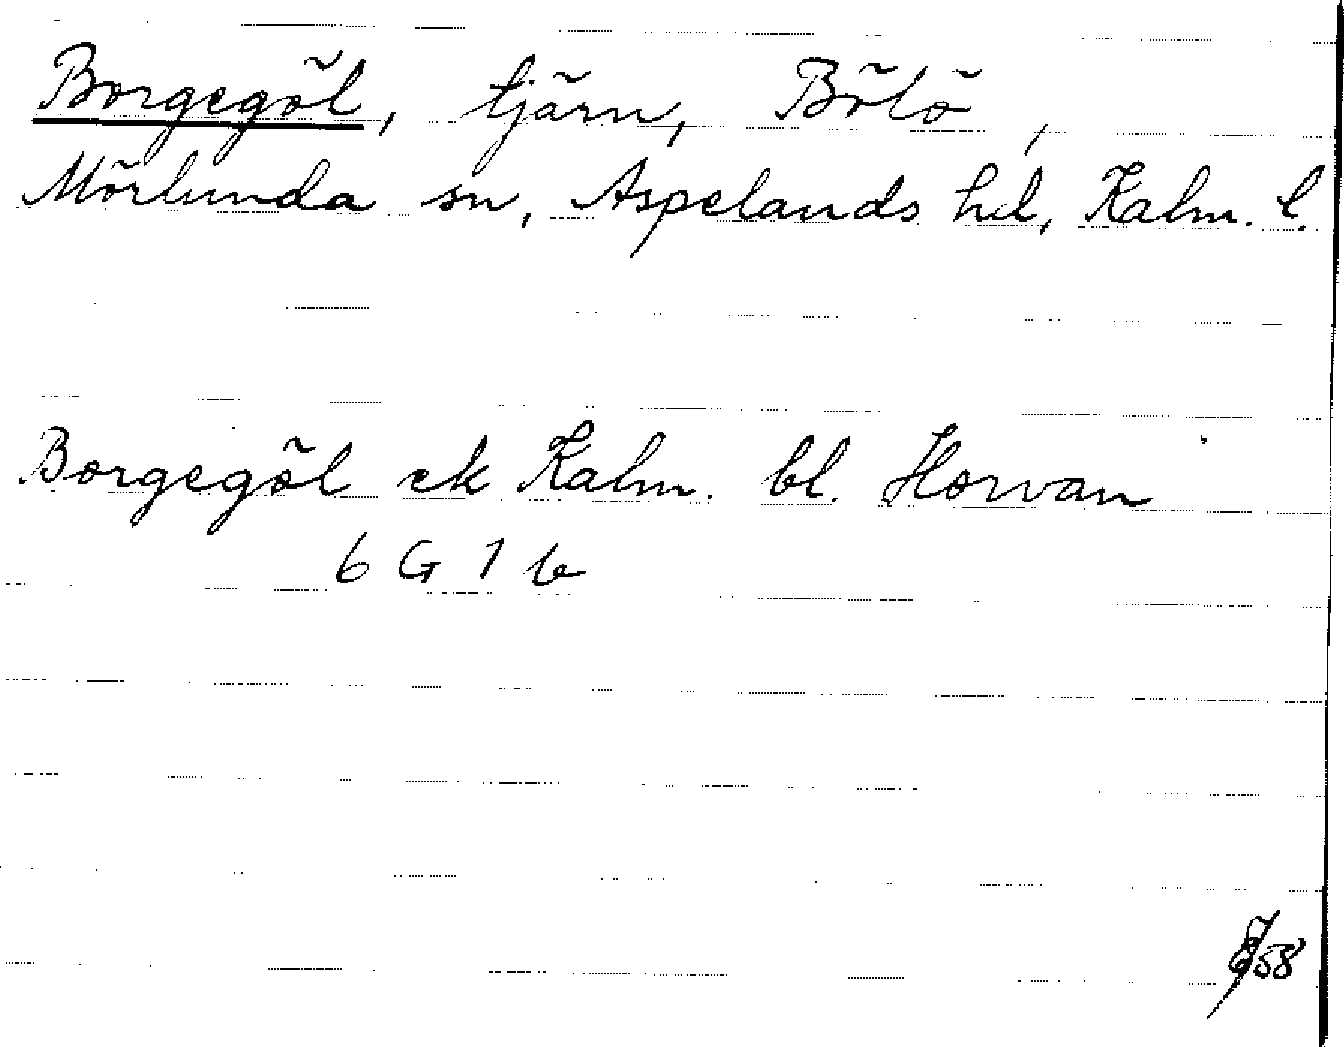 Borgegöl, tjärn, Bötö,
Mörlunda sn, Aspelands hd, Kalm. l.
Borgegöl ek Kalm. bl. Horvan
6 G 1 b
/58